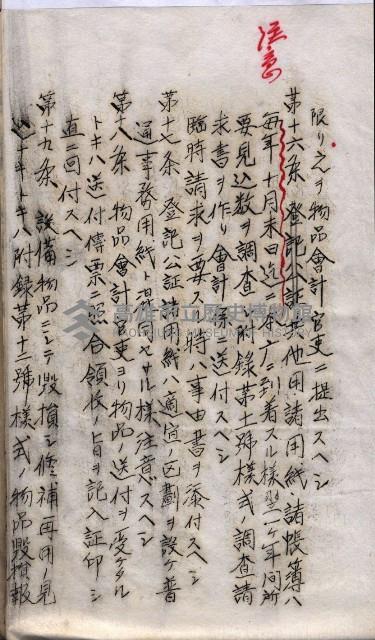 注意
限リ之ヲ物品會計官吏ニ提出スヘシ
第十六条 登記公証其他用諸用紙、諸帳簿ハ
毎年十月末日迄ニ本庁ニ到着スル様翌一ケ年間所
要見込数ヲ調査シ附録第十一號様式ノ調査請
求書ヲ作リ會計係ヘ送付スヘシ
臨時請求ヲ要スル時ハ事由書ヲ添付スヘシ
第十七条 登記公証諸用紙ハ適宜ノ区劃ヲ設ケ普
通事務用紙ト混同セサル様注意スヘシ
第十八条 物品會計官吏ヨリ物品ノ送付ヲ受ケタル
トキハ送付傳票ニ照合領收ノ旨ヲ記入証印シ
直ニ回付スヘシ
第十九条 設備物品ニシテ毀損シ修補再用ノ見
込ナキトキハ附録第十二號様式ノ物品毀損報
高雄市立歷史博物館
KAOHSIUNG MUSEUM OF HISTORY